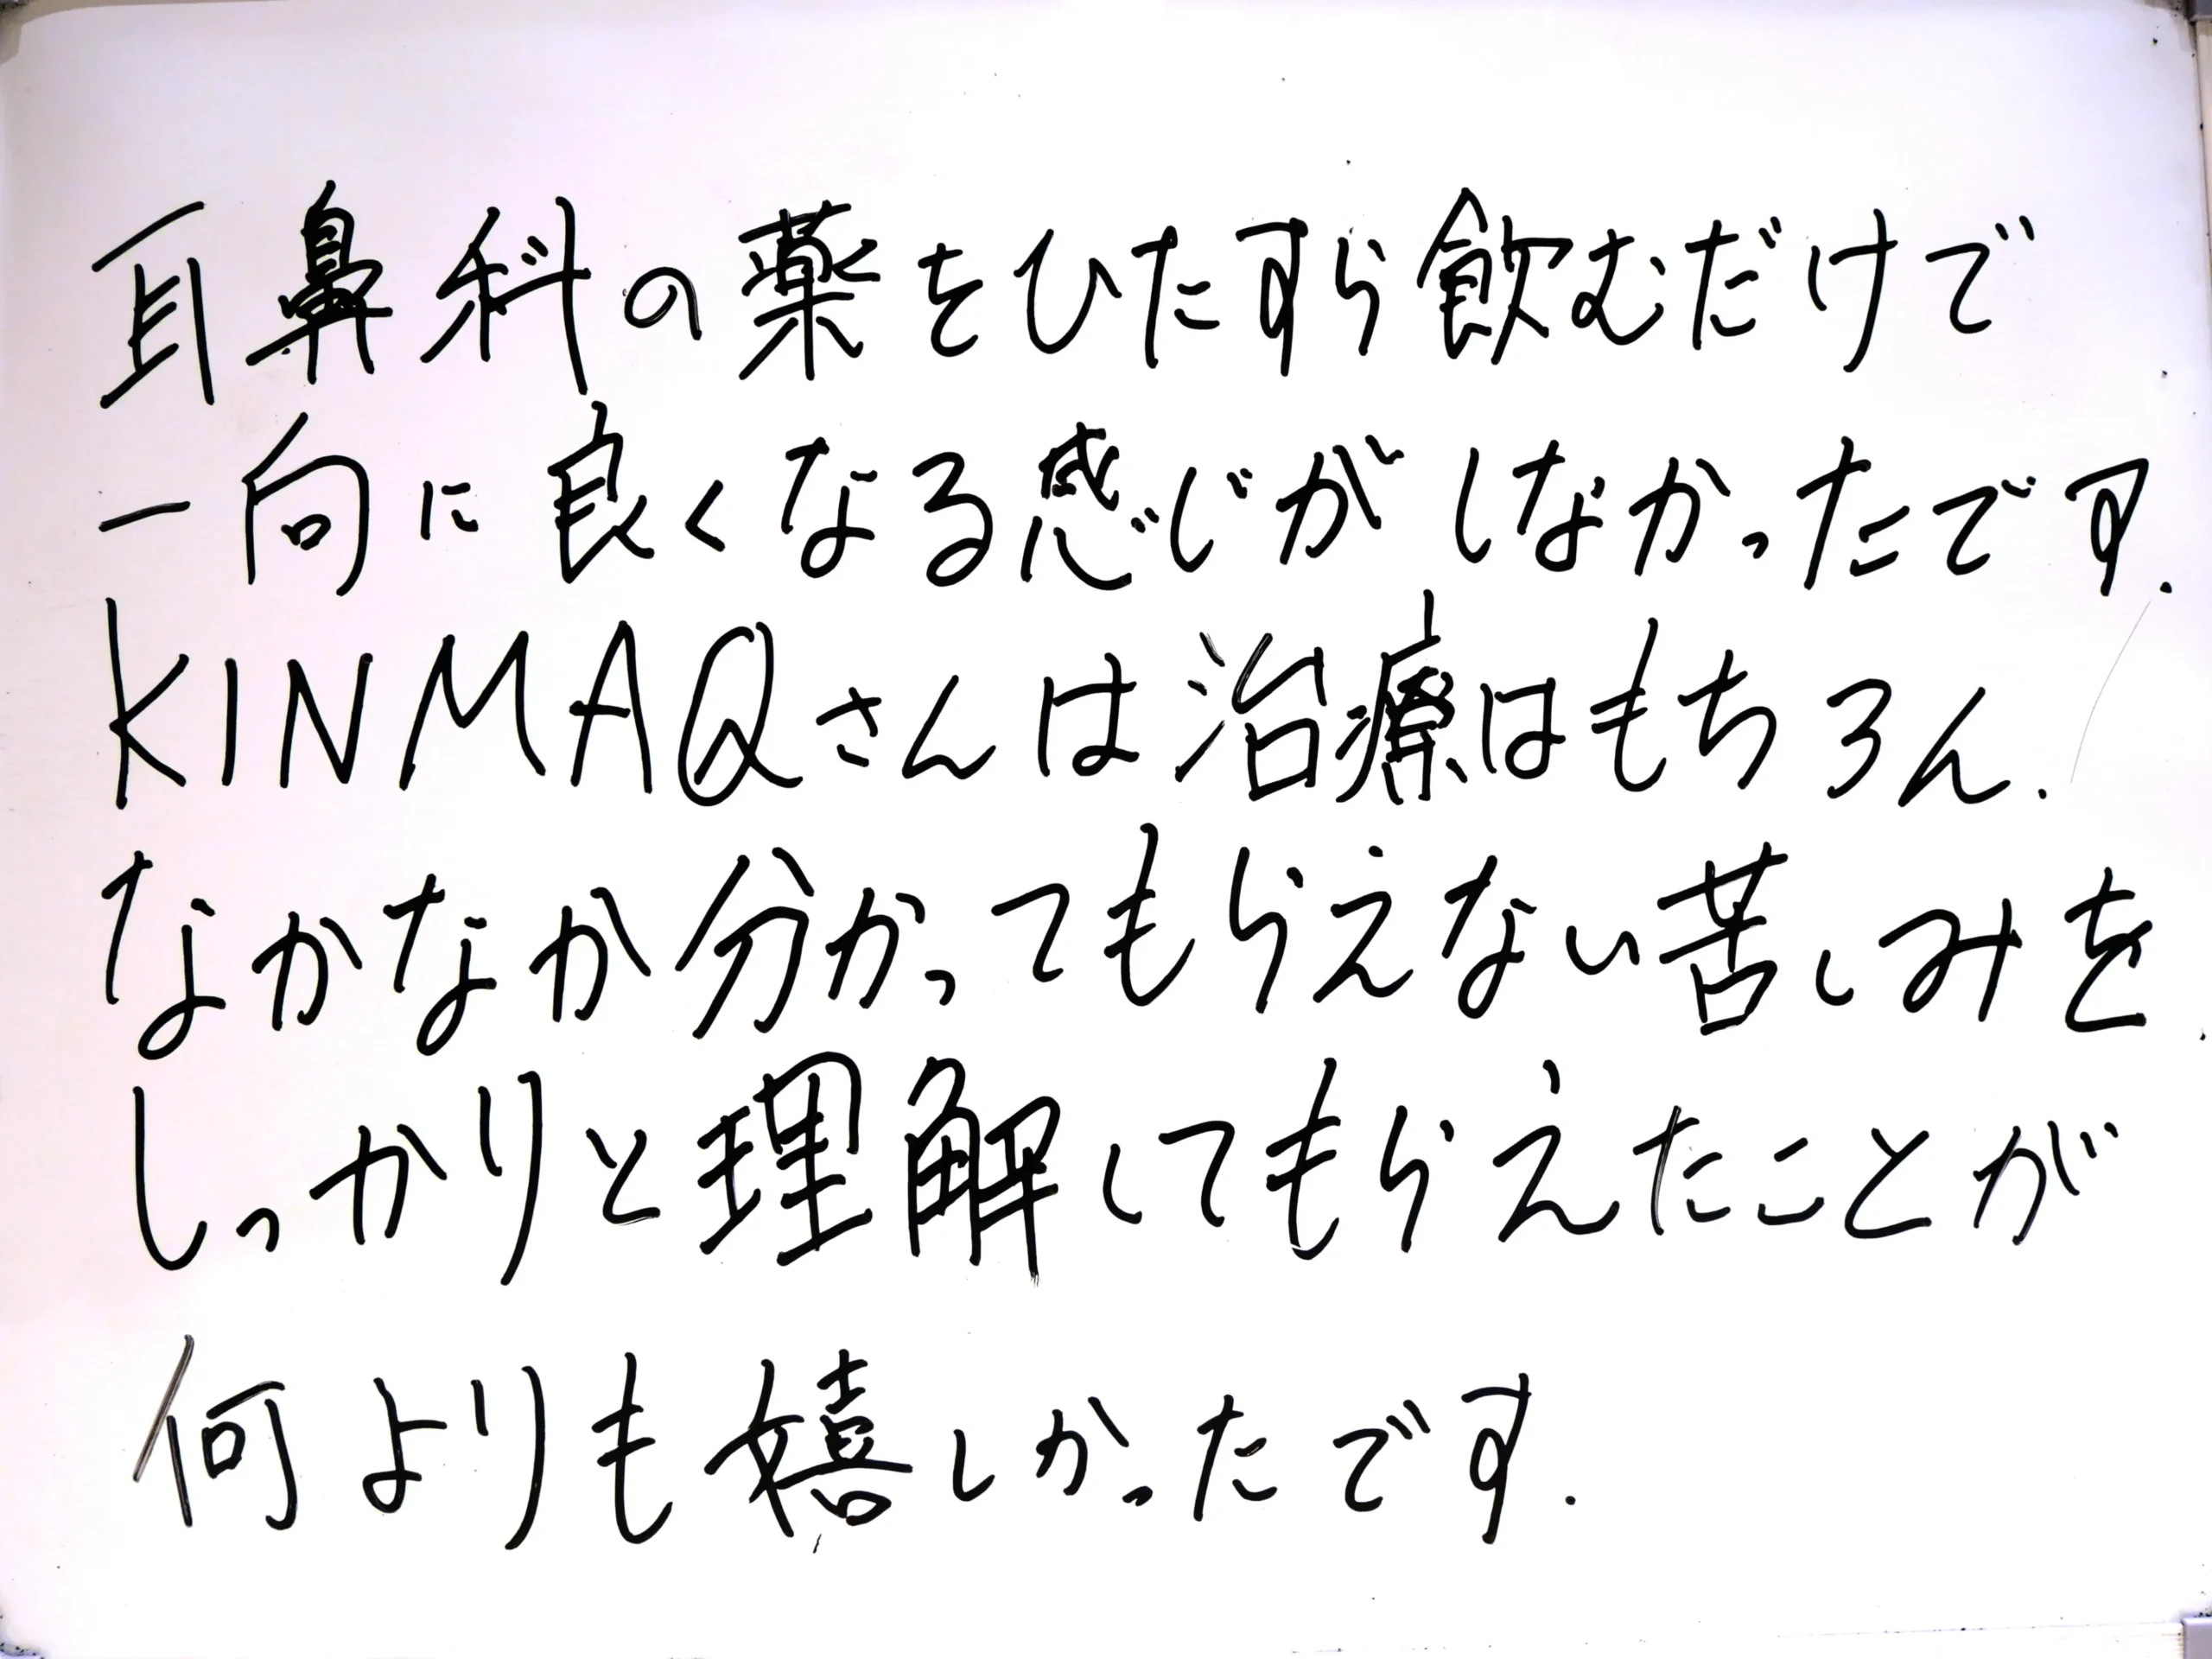 耳鼻科の薬をひたすら飲むだけで
一向に良くなる感じがしなかったです.
KINMAQさんは治療はもちろん.
なかなか分かってもらえない苦しみを
しっかりと理解してもらえたことが
何よりも嬉しかったです.